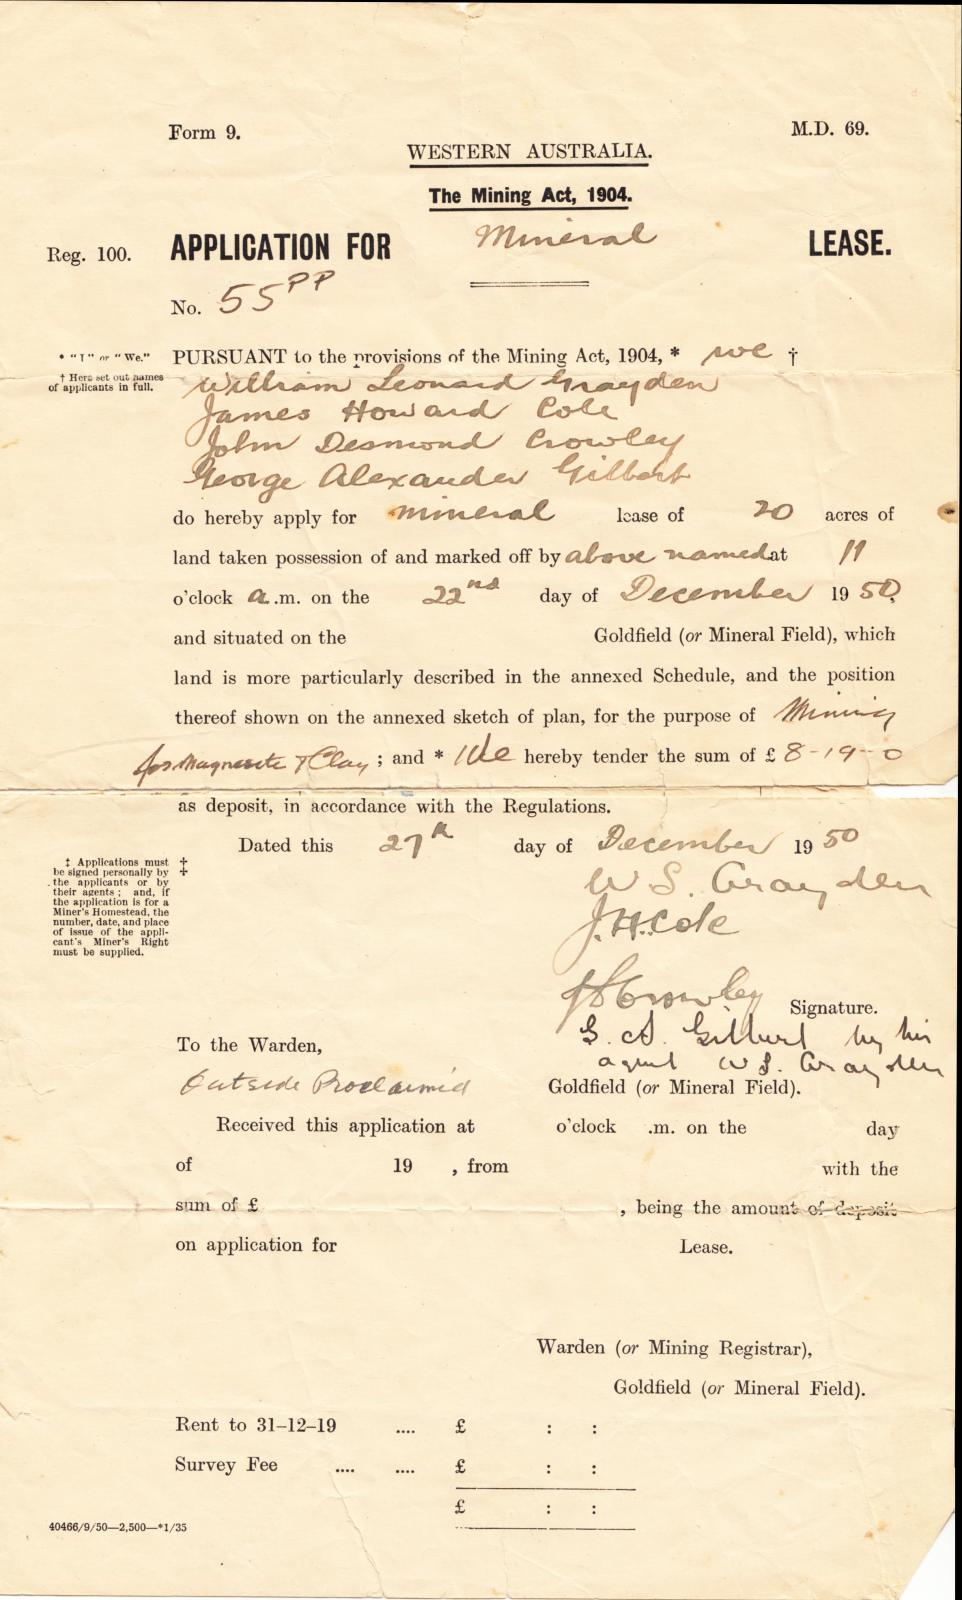 Form 9.
M.D. 69.
WESTERN AUSTRALIA.
The Mining Act, 1904.
Reg. 100. APPLICATION FOR Mineral LEASE.
No. 55 PP
* "I" or "We." PURSUANT to the provisions of the Mining Act, 1904, * we †
† Here set out names of applicants in full.
William Leonard Grayden
James Howard Cole
John Desmond Crowley
George Alexander Gilbert
do hereby apply for mineral lease of 20 acres of
land taken possession of and marked off by above named at 11
o'clock a.m. on the 22nd day of December 1950,
and situated on the Goldfield (or Mineral Field), which
land is more particularly described in the annexed Schedule, and the position
thereof shown on the annexed sketch of plan, for the purpose of Mining
for Magnesite & Clay; and * We hereby tender the sum of £ 8-19-0
as deposit, in accordance with the Regulations.
Dated this 27th day of December 1950
‡ Applications must
be signed personally by
the applicants or by
their agents; and, if
the application is for a
Miner's Homestead, the
number, date, and place
of issue of the appli-
cant's Miner's Right
must be supplied.
‡
W L Grayden
J. H. Cole
J D Crowley
Signature.
G. A. Gilbert by his
agent W L Grayden
To the Warden,
Outside Proclaimed Goldfield (or Mineral Field).
Received this application at o'clock .m. on the day
of 19 , from with the
sum of £ , being the amount of deposit
on application for Lease.
Warden (or Mining Registrar),
Goldfield (or Mineral Field).
Rent to 31-12-19 .... £ : :
Survey Fee .... .... £ : :
£ : :
40466/9/50—2,500—*1/35